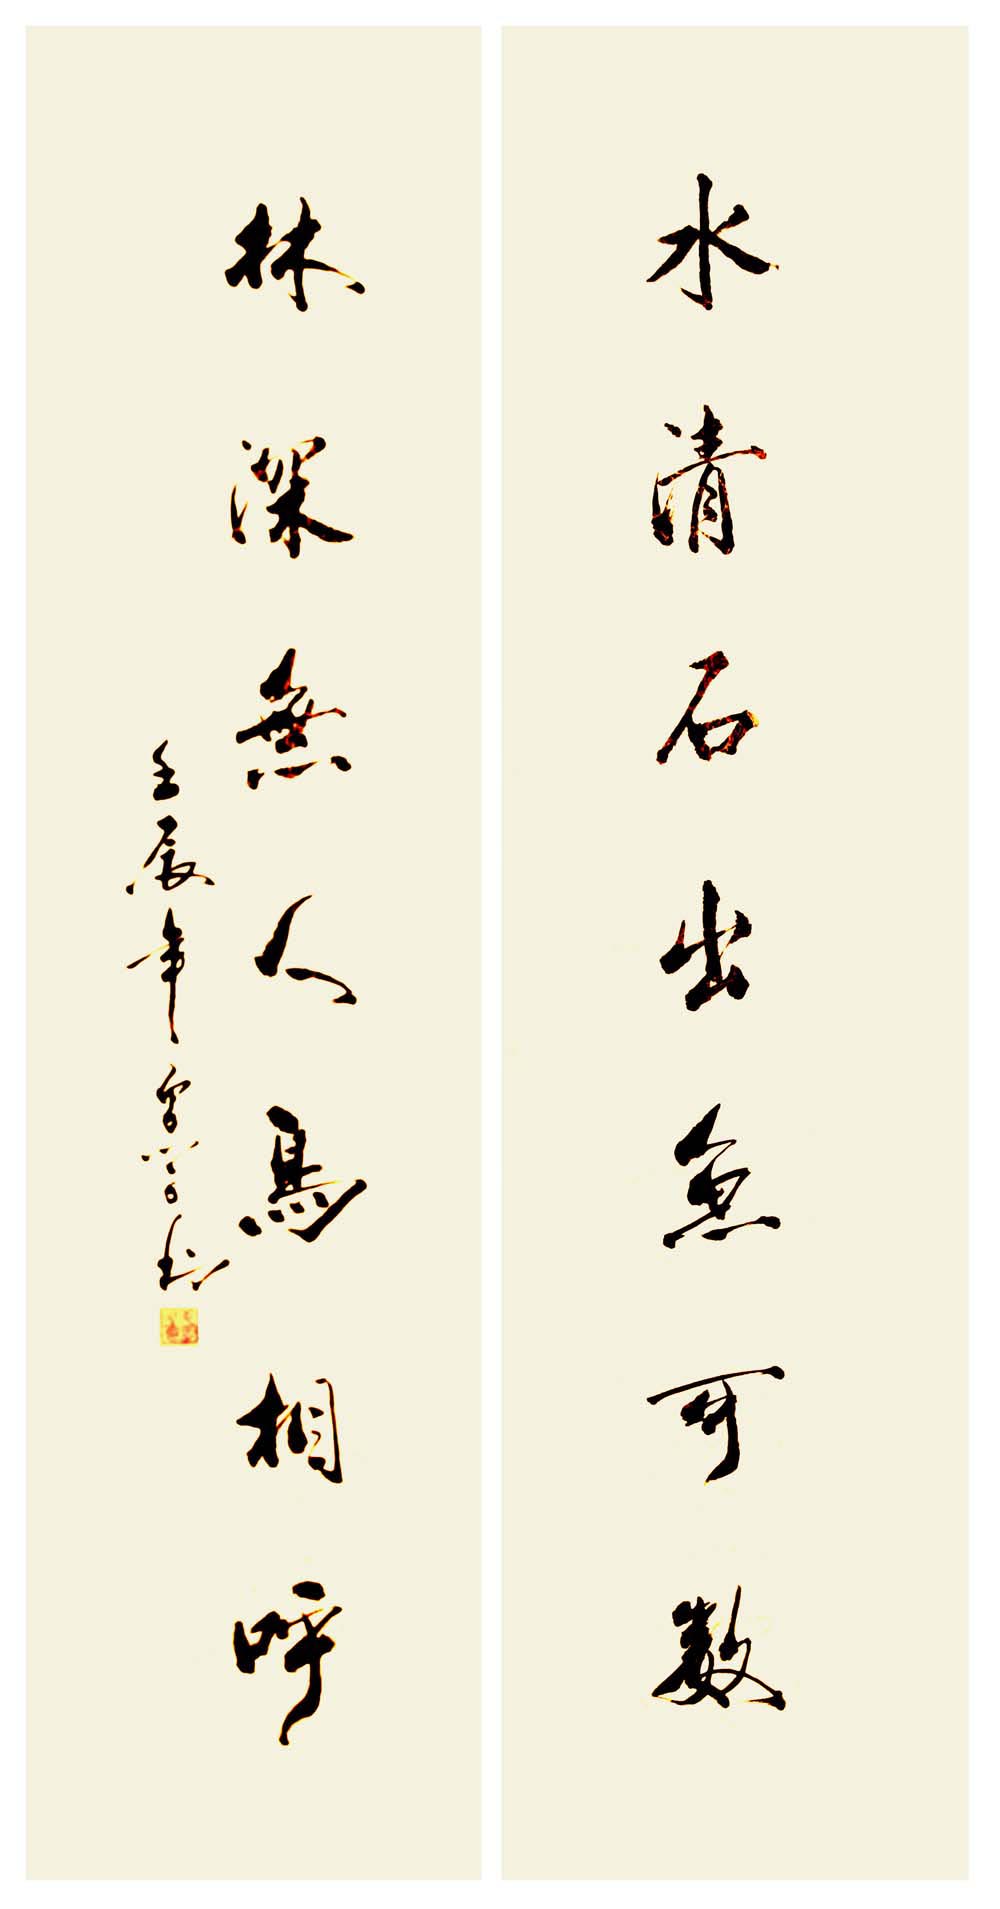 水清石出魚可數
林深無人鳥相呼
壬辰年